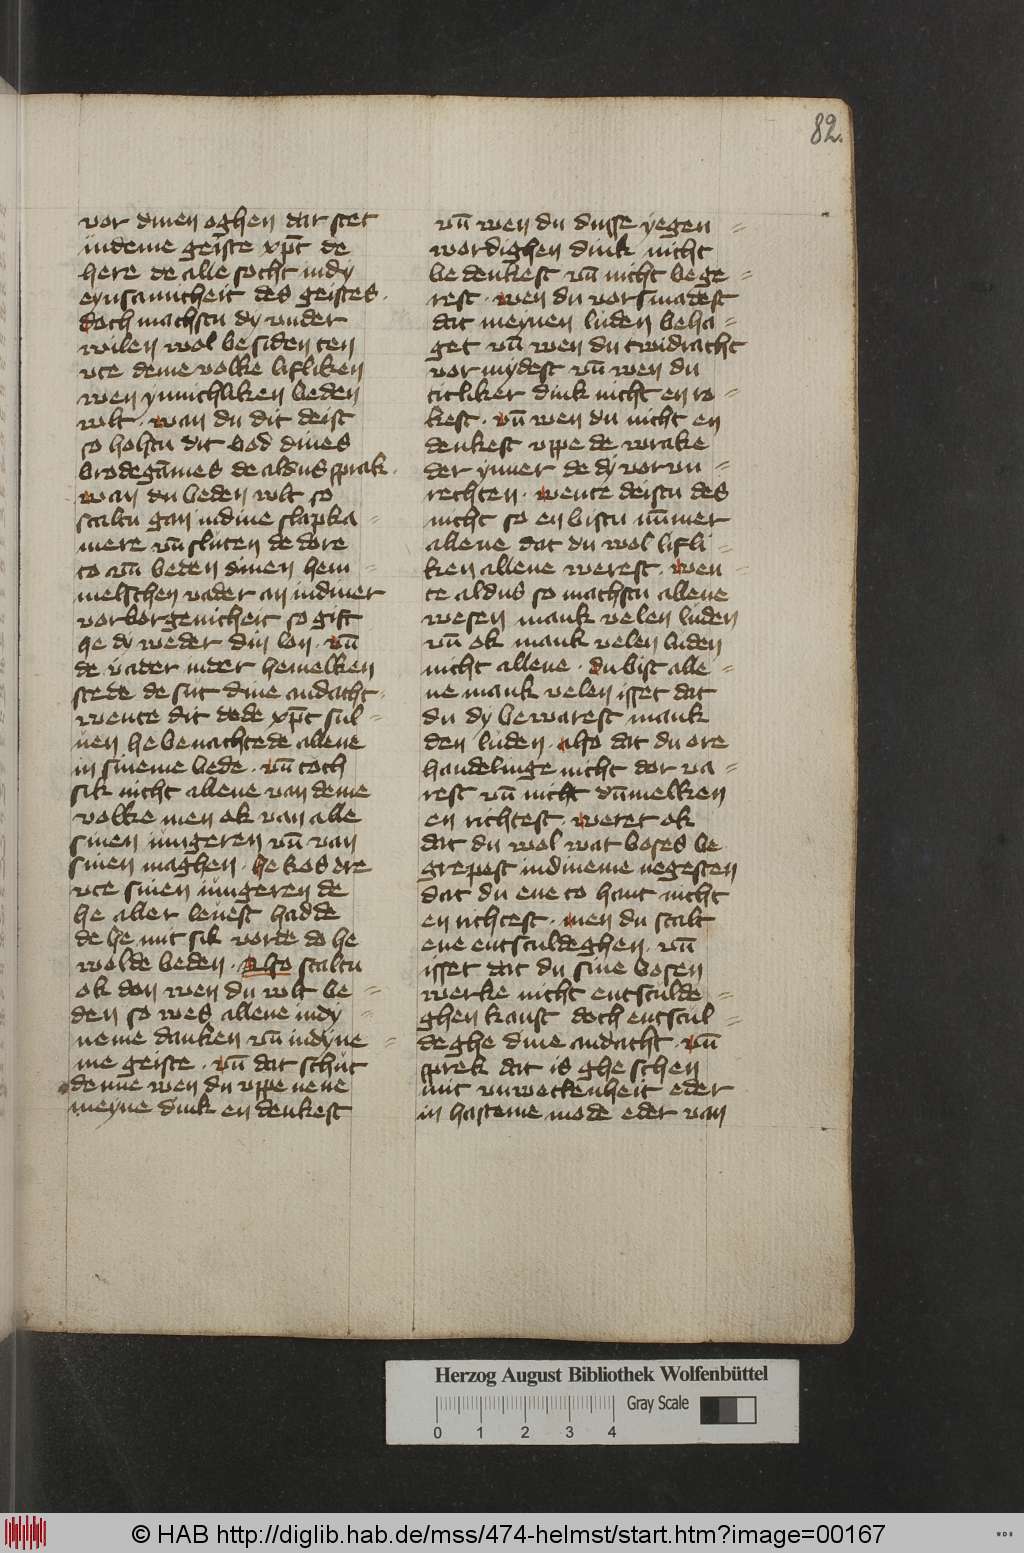 82.
vor dinen oghen dar stet
in deme geiste xp̄c de
here de alle socht in dy
eynsamicheit des geistes ·
doch machstu dy vnder
wilen wol besiden ten
vte deme volke lifliken
wen ynnichliken beden
wlt · wan du dit deist
so holstu dit bod dines
brodegāmes de aldus sprak ·
wan du beden wlt so
scaltu gan in dine slapka =
mere vn̄ sluten de dore
to vn̄ beden dinen hem =
melschen vader an in diner
vorborgenicheit so gift
he dy weder din lon · vn̄
de vader in der hemelken
stede de sut dine andacht ·
wente dit dede xp̄c sul =
uen he benachtede allene
in sineme bede · vn̄ toch
sik nicht allene van deme
volke men ok van alle
sinen iungeren vn̄ van
sinen maghen · he kos ere
vte sinen iungeren de
he aller leuest hadde
de he mit sik vorde do he
wolde beden · Also scaltu
ok don wen du wlt be =
den so wes allene in dy =
neme danken vn̄ in dyne =
me geiste · vn̄ dat schut
denne wen du vppe nene
meyne dink en denkest
vn̄ wen du dusse yegen =
wordighen dink nicht
bedenkest vn̄ nicht bege =
rest · wen du vorsmadest
dat meynen luden beha =
get vn̄ wen du twidracht
vormydest vn̄ wen du
titliker dink nicht en ro =
kest · vn̄ wen du nicht en
denkest vppe de wrake
der ynner de dy vorvn =
rechten · wente deistu des
nicht so en bistu nūmer
allene dat du wol lifli =
ken allene werest · wen =
te aldus so machstu allene
wesen mank velen luden
vn̄ ok mank velen luden
nicht allene · du bist alle =
ne mank velen isset dat
du dy bewarest mank
den luden · also dat du ere
handelinge nicht dor va =
rest vn̄ nicht vn̄melken
en richtest · weret ok
dat du wol wat boses be
grepest in dineme negesten
dat du ene to hant nicht
en richtest · men du scalt
ene entsculdeghen · vn̄
isset dat du sine bosen
werke nicht entsculde =
ghen kanst doch entscul =
deghe dine andacht · vn̄
sprek dat is ghe schen
mit vnwetkenheit eder
in hasteme mode eder van
Herzog August Bibliothek Wolfenbüttel
Gray Scale
0 1 2 3 4
© HAB http://diglib.hab.de/mss/474-helmst/start.htm?image=00167